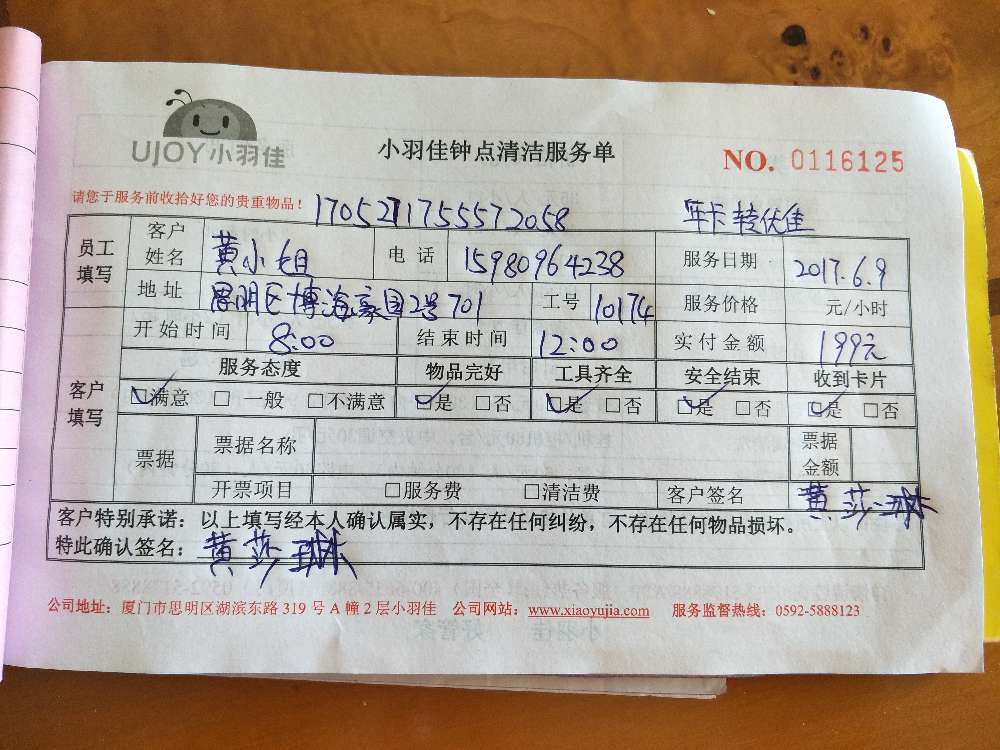 UJOY小羽佳
小羽佳钟点清洁服务单
NO. 0116125
请您于服务前收拾好您的贵重物品！ 170527175557 2058 年卡转优佳
员工填写 客户姓名 黄小姐 电话 15980964238 服务日期 2017.6.9
地址 思明区博海豪园2号701 工号 10174 服务价格 元/小时
客户填写 开始时间 8:00 结束时间 12:00 实付金额 199元
服务态度 物品完好 工具齐全 安全结束 收到卡片
☑满意 □一般 □不满意 ☑是 □否 ☑是 □否 ☑是 □否 ☑是 □否
票据 票据名称 票据金额
开票项目 □服务费 □清洁费 客户签名 黄莎琳
客户特别承诺：以上填写经本人确认属实，不存在任何纠纷，不存在任何物品损坏。
特此确认签名：黄莎琳
公司地址：厦门市思明区湖滨东路 319 号 A 幢 2 层小羽佳 公司网站：www.xiaoyujia.com 服务监督热线：0592-5888123